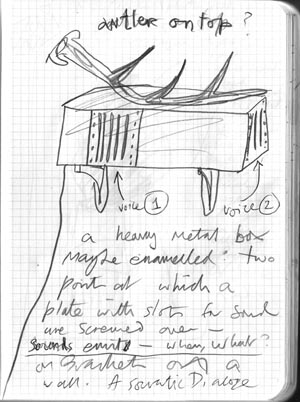 antler on top?
voice 1
voice 2
a heavy metal box
maybe enamelled: two
point at which a
plate with slots for sound
are screwed over –
Sounds emit – when, what?
on brackets on a
wall. A socratic Dialoge